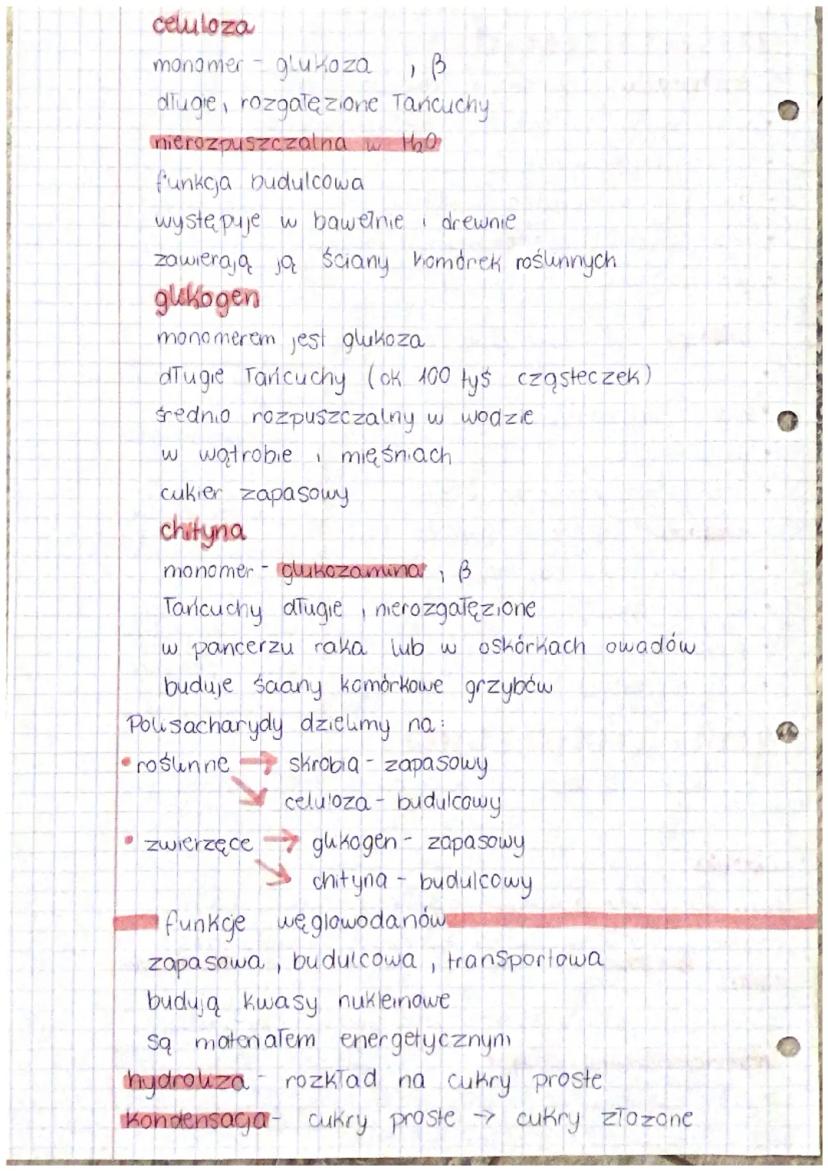 celuloza
monomer - glukoza , β
długie, rozgałęzione łańcuchy
nierozpuszczalna w H₂O
funkcja budulcowa
występuje w bawełnie i drewnie
zawierają ją ściany komórek roślinnych
glikogen
monomerem jest glukoza
długie łańcuchy (ok 100 tyś cząsteczek)
średnio rozpuszczalny w wodzie
w wątrobie i mięśniach
cukier zapasowy
chityna
monomer - glukozamina , β
łańcuchy długie , nierozgałęzione
w pancerzu raka lub w oskórkach owadów
buduje ściany komórkowe grzybów
Polisacharydy dzielimy na:
• roślinne → skrobia - zapasowy
↘ celuloza - budulcowy
• zwierzęce → glikogen - zapasowy
↘ chityna - budulcowy
funkcje węglowodanów
zapasowa , budulcowa , transportowa
budują kwasy nukleinowe
są materiałem energetycznym
hydroliza - rozkład na cukry proste
kondensacja - cukry proste → cukry złożone